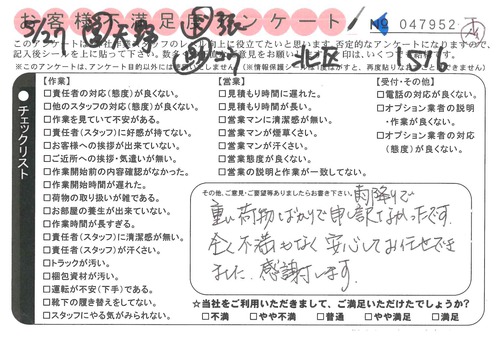 お客様不満足度アンケート
№ 047952
5/27
天野
北区
1576
このアンケートは
向上に役立てたいと思います。否定的なアンケートになりますので、
記入後シールを上に貼って下さい。
(※このアンケートは、アンケート目的以外には
【作業】
□責任者の対応(態度)が良くない。
□他のスタッフの対応(態度)が良くない。
□作業を見ていて不安がある。
□責任者(スタッフ)に好感が持てない。
□お客様への挨拶が出来ていない。
□ご近所への挨拶・気遣いが無い。
□作業開始前の内容確認がなかった。
□作業開始時間が遅れた。
□荷物の取り扱いが雑である。
□お部屋の養生が出来ていない。
□作業時間が長すぎる。
□責任者(スタッフ)に清潔感が無い。
□責任者(スタッフ)が汗くさい。
□トラックが汚い。
□梱包資材が汚い。
□運転が不安(下手)である。
□靴下の履き替えをしてない。
□スタッフにやる気がみられない。
【営業】
□見積もり時間に遅れた。
□見積もり時間が長い。
□営業マンに清潔感が無い。
□営業マンが煙草くさい。
□営業マンが汗くさい。
□営業態度が良くない。
□営業の説明と作業が一致してない。
【受付・その他】
□電話の対応が良くない。
□オプション業者の説明
・作業が良くない。
□オプション業者の対応
(態度)が良くない。
チェックリスト
その他、ご意見・ご要望等ありましたらお書き下さい。
雨降りで
重い荷物ばかりで申し訳なかったです。
全く不満もなく安心してお任せでき
ました。感謝します。
☆当社をご利用いただきまして、ご満足いただけたでしょうか?
□不満 □やや不満 □普通 □やや満足 □満足